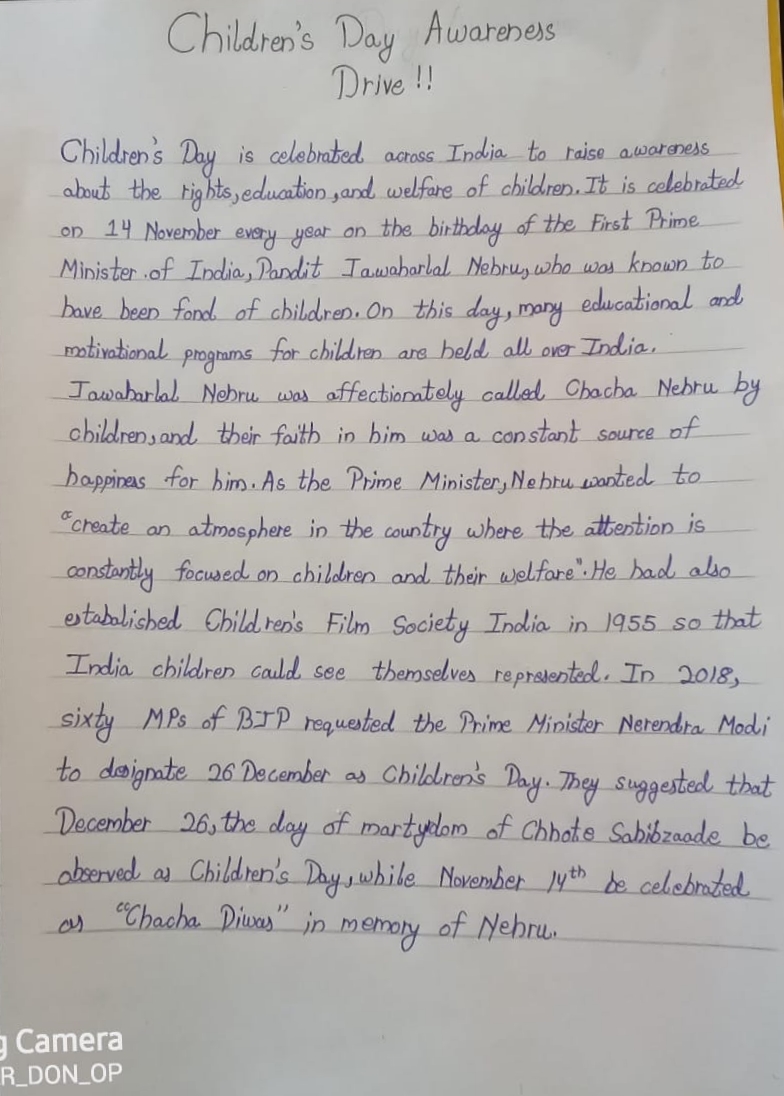 Children's Day Awareness
Drive !!
Children's Day is celebrated across India to raise awareness
about the rights, education, and welfare of children. It is celebrated
on 14 November every year on the birthday of the First Prime
Minister of India, Pandit Jawaharlal Nehru, who was known to
have been fond of children. On this day, many educational and
motivational programs for children are held all over India.
Jawaharlal Nehru was affectionately called Chacha Nehru by
children, and their faith in him was a constant source of
happiness for him. As the Prime Minister, Nehru wanted to
"create an atmosphere in the country where the attention is
constantly focused on children and their welfare". He had also
estabalished Children's Film Society India in 1955 so that
India children could see themselves represented. In 2018,
sixty MPs of BJP requested the Prime Minister Nerendra Modi
to designate 26 December as Children's Day. They suggested that
December 26, the day of martydom of Chhote Sahibzaade be
observed as Children's Day, while November 14th be celebrated
as "Chacha Diwas" in memory of Nehru.
g Camera
R_DON_OP